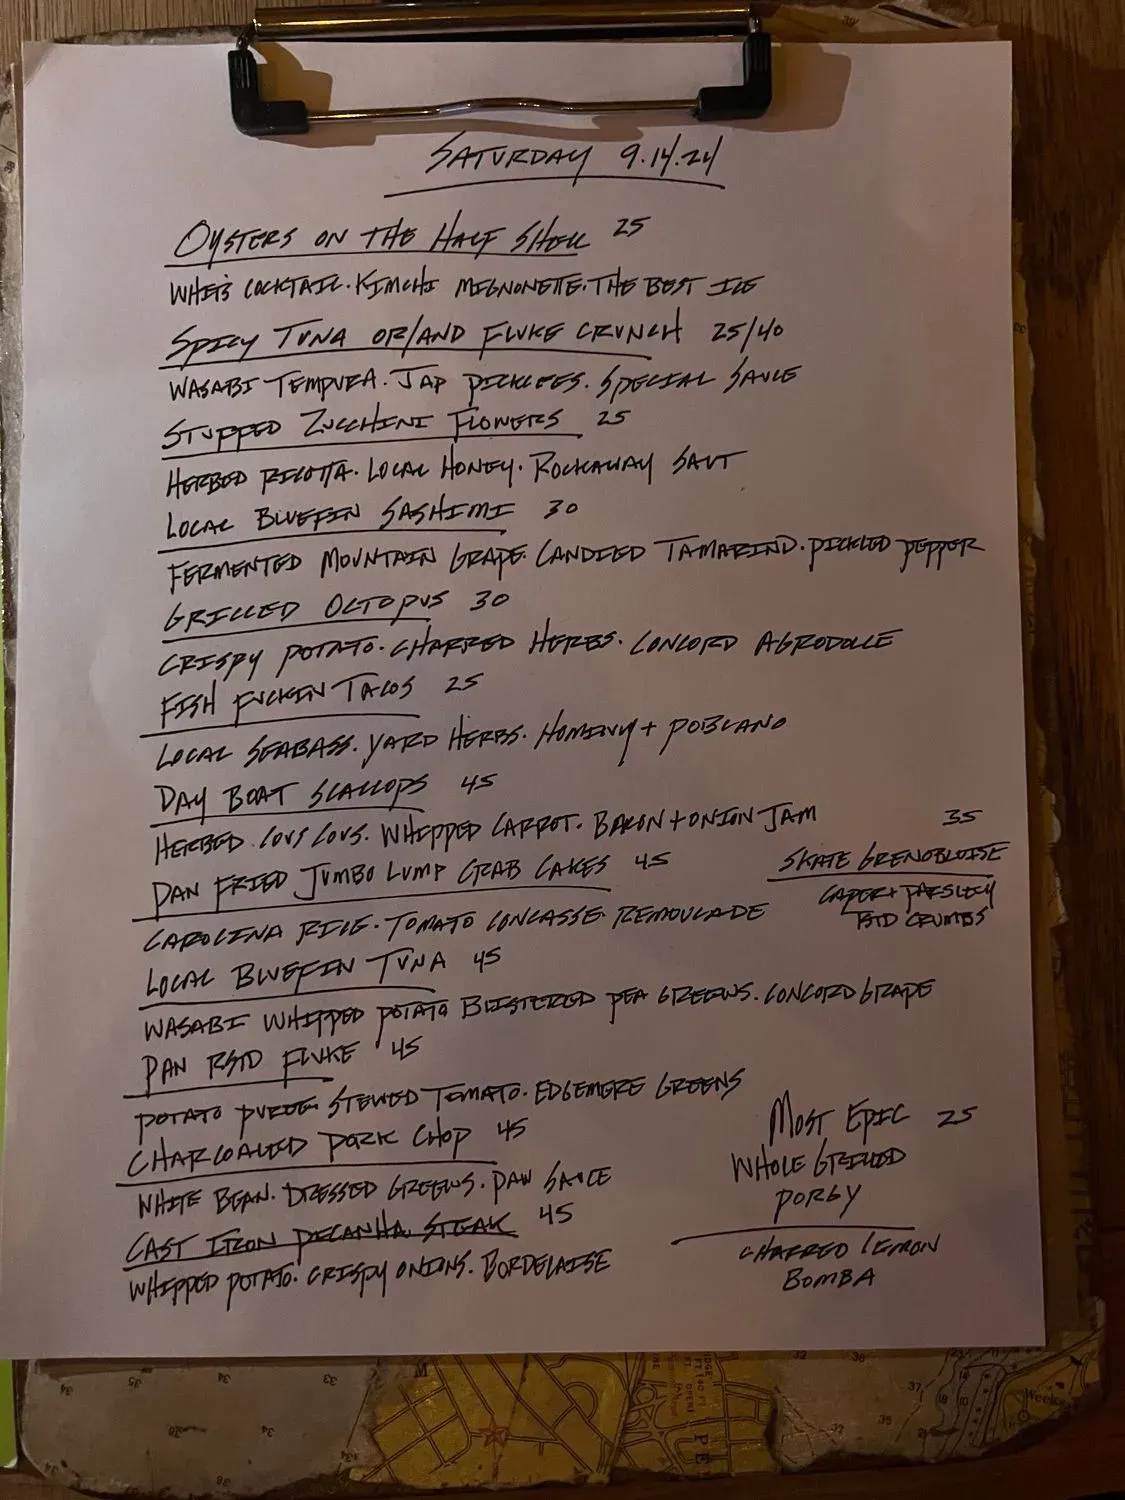 SATURDAY 9.14.24
OYSTERS ON THE HALF SHELL 25
WHIT'S COCKTAIL. KIMCHI MIGNONETTE. THE BEST ICE
SPICY TUNA OR/AND FLUKE CRUNCH 25/40
WASABI TEMPURA. JAP PICKLES. SPECIAL SAUCE
STUFFED ZUCCHINI FLOWERS 25
HERBED RICOTTA. LOCAL HONEY. ROCKAWAY SALT
LOCAL BLUEFIN SASHIMI 30
FERMENTED MOUNTAIN GRAPE. CANDIED TAMARIND. PICKLED PEPPER
GRILLED OCTOPUS 30
CRISPY POTATO. CHARRED HERBS. CONCORD AGRODOLCE
FISH FUCKIN TACOS 25
LOCAL SEABASS. YARD HERBS. HOMINY + POBLANO
DAY BOAT SCALLOPS 45
HERBED COUS COUS. WHIPPED CARROT. BACON + ONION JAM
35
SKATE GRENOBLOISE
CAPER + PARSLEY
RSTD CRUMBS
PAN FRIED JUMBO LUMP CRAB CAKES 45
CAROLINA RICE. TOMATO CONCASSE. REMOULADE
LOCAL BLUEFIN TUNA 45
WASABI WHIPPED POTATO BLISTERED PEA GREENS. CONCORD GRAPE
PAN RSTD FLUKE 45
POTATO PUREE. STEWED TOMATO. EDGEMERE GREENS
CHARCOALED PORK CHOP 45
WHITE BEAN. DRESSED GREENS. PAN SAUCE
CAST IRON PICANHA STEAK 45
WHIPPED POTATO. CRISPY ONIONS. BORDELAISE
MOST EPIC 25
WHOLE GRILLED
PORGY
CHARRED LEMON
BOMBA